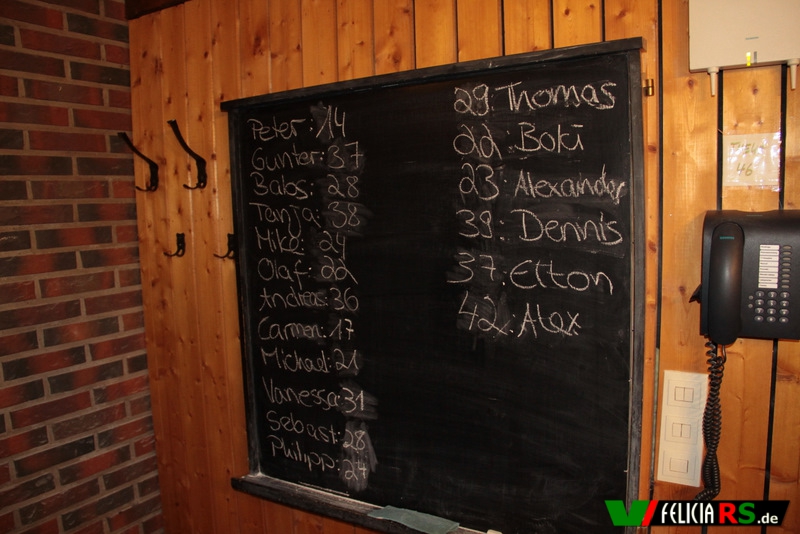 Peter: 14
Gunter: 37
Babs: 28
Tanja: 38
Mike: 24
Olaf: 22
Andreas: 36
Carmen: 17
Michael: 21
Vanessa: 31
Sebast: 28
Philipp: 24
29: Thomas
22: Boki
23: Alexander
39: Dennis
37: Elton
42: Alex
46
FELICIARS.de